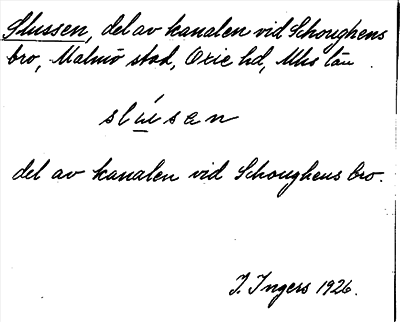 Slussen, del av kanalen vid Schoughens
bro, Malmö stad, Oxie hd, Mhs län.
slu̲sen
del av kanalen vid Schoughens bro.
I. Ingers 1926.